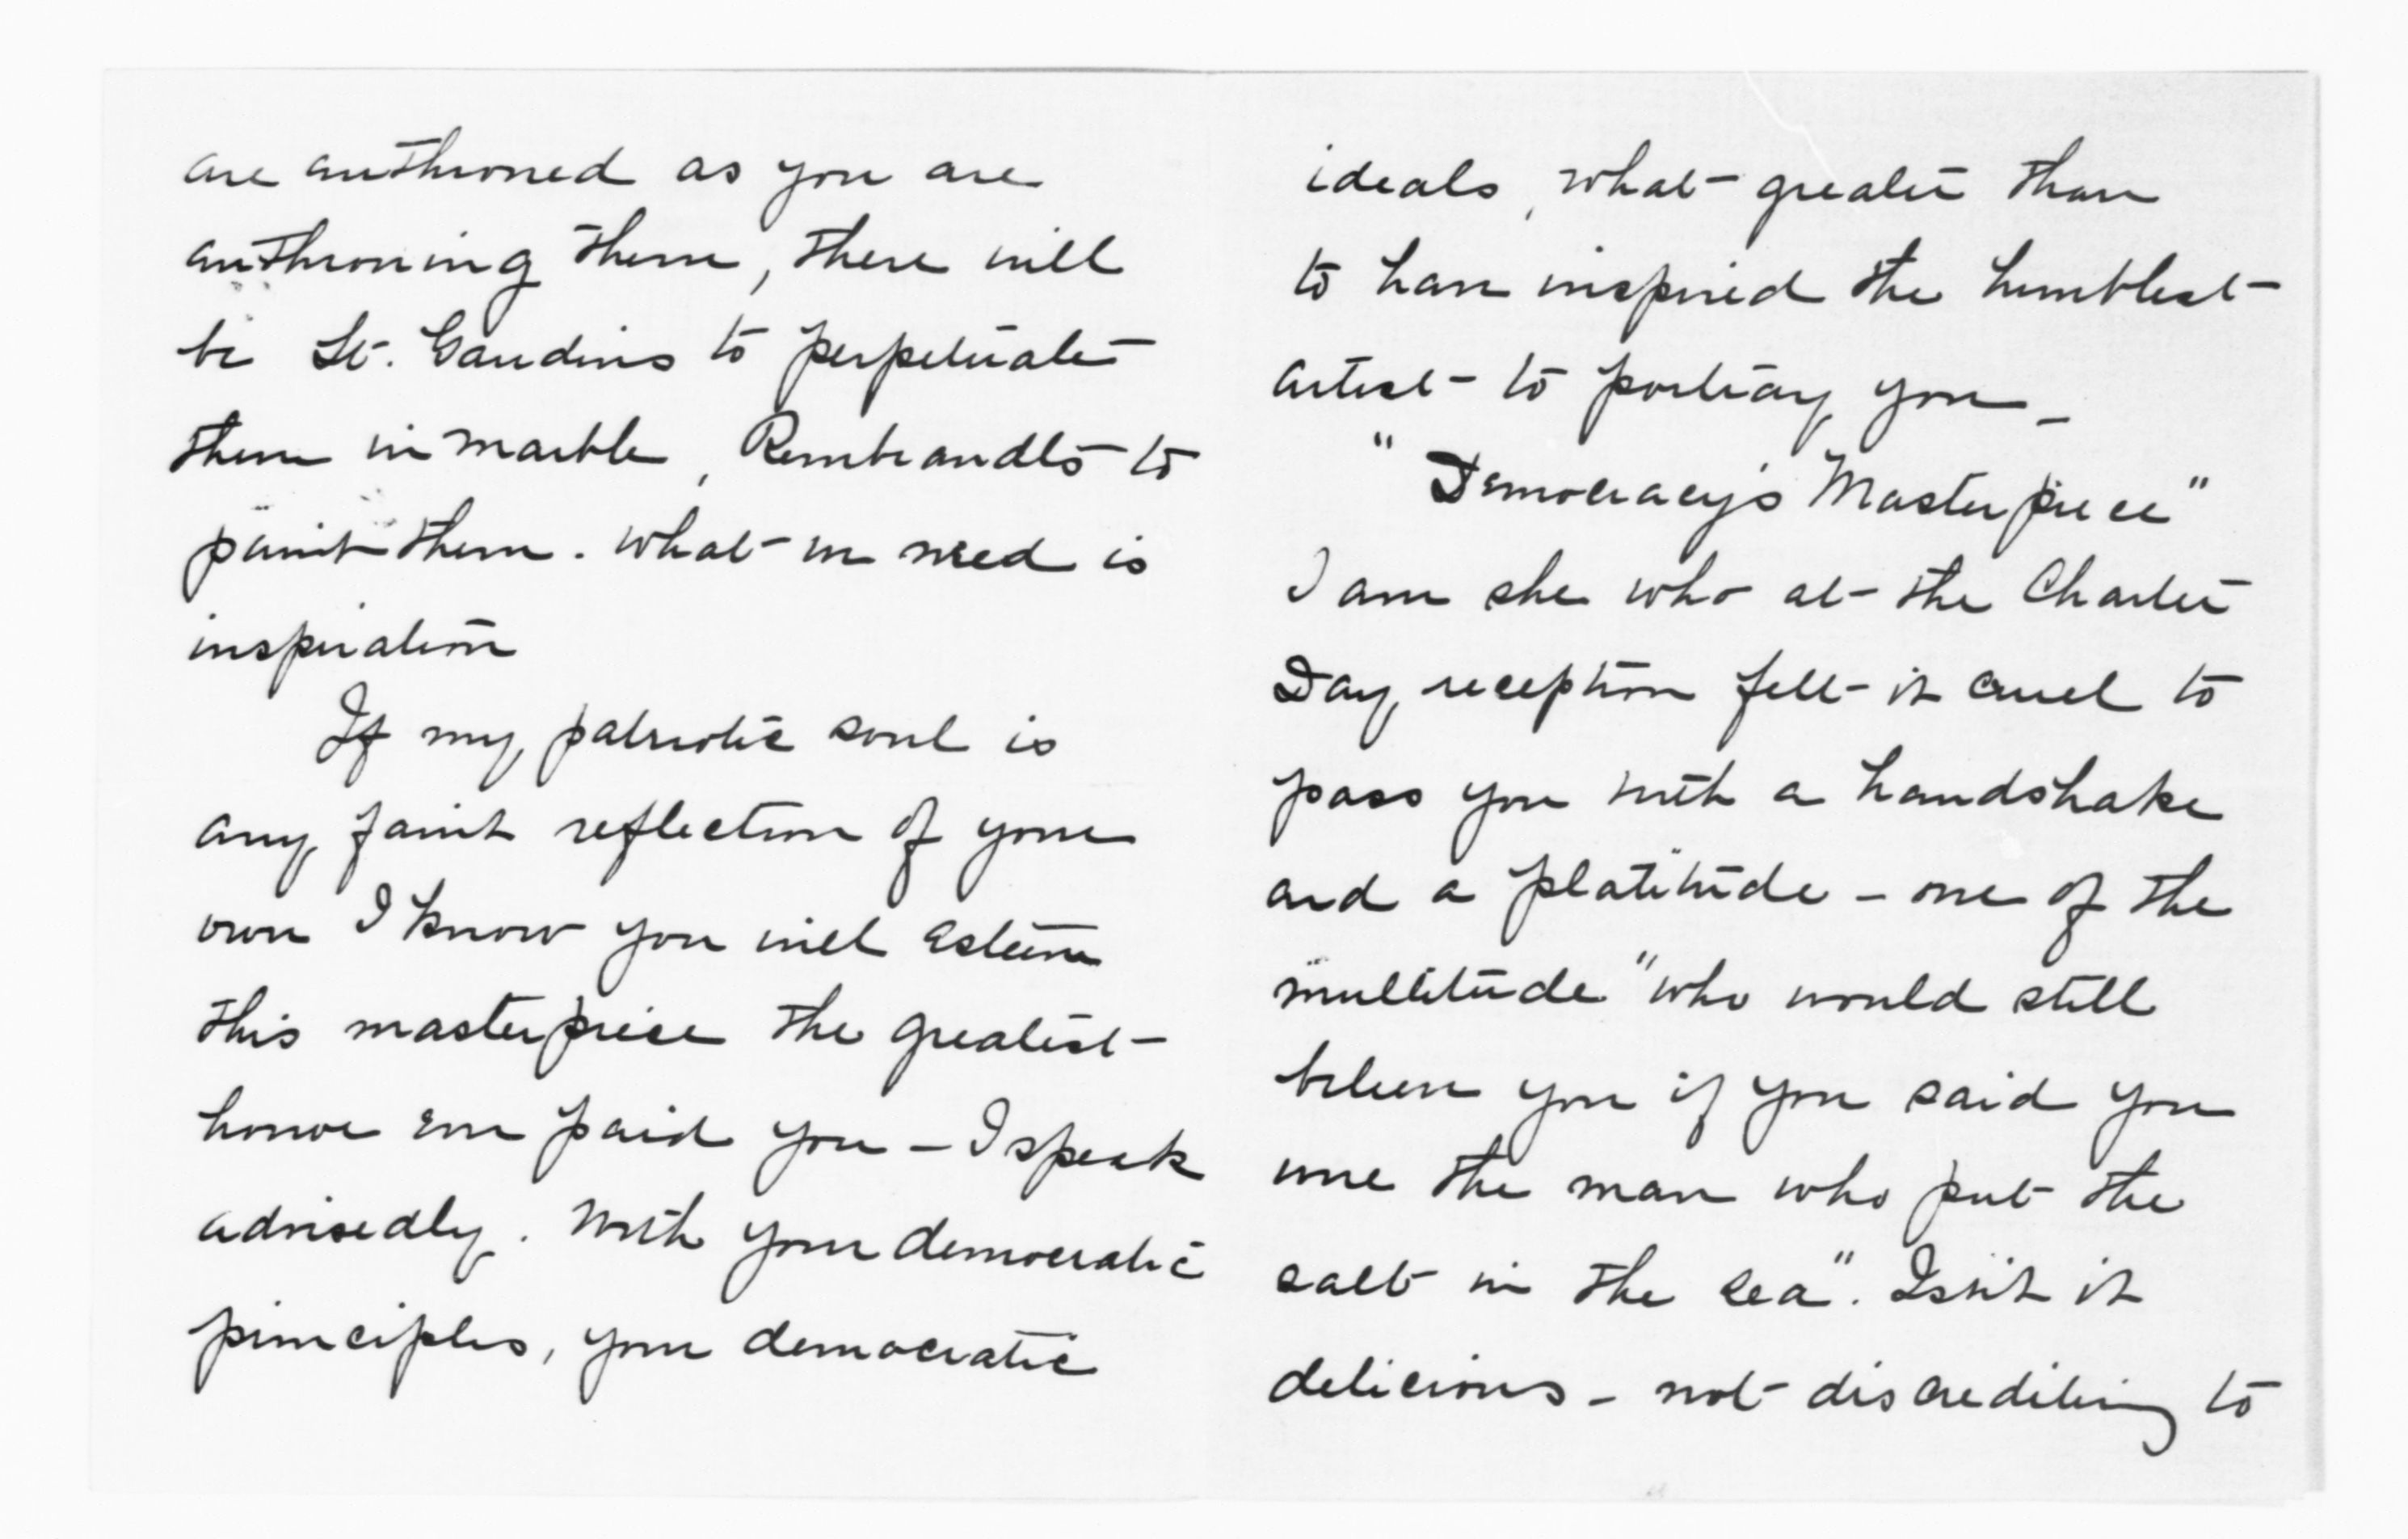 are enthroned as you are
enthroning them, there will
be St. Gaudins to perpetuate
them in marble, Rembrandts to
paint them. What we need is
inspiration
If my patriotic soul is
any faint reflection of your
own I know you will esteem
this masterpiece the greatest
honor ever paid you - I speak
advisedly. With your democratic
principles, your democratic
ideals, what greater than
to have inspired the humblest
artist to portray you -
"Democracy's Masterpiece"
I am she who at the Charter
Day reception felt it cruel to
pass you with a handshake
and a platitude - one of the
multitude "who would still
believe you if you said you
were the man who put the
salt in the sea". Isn't it
delicious - not discrediting to